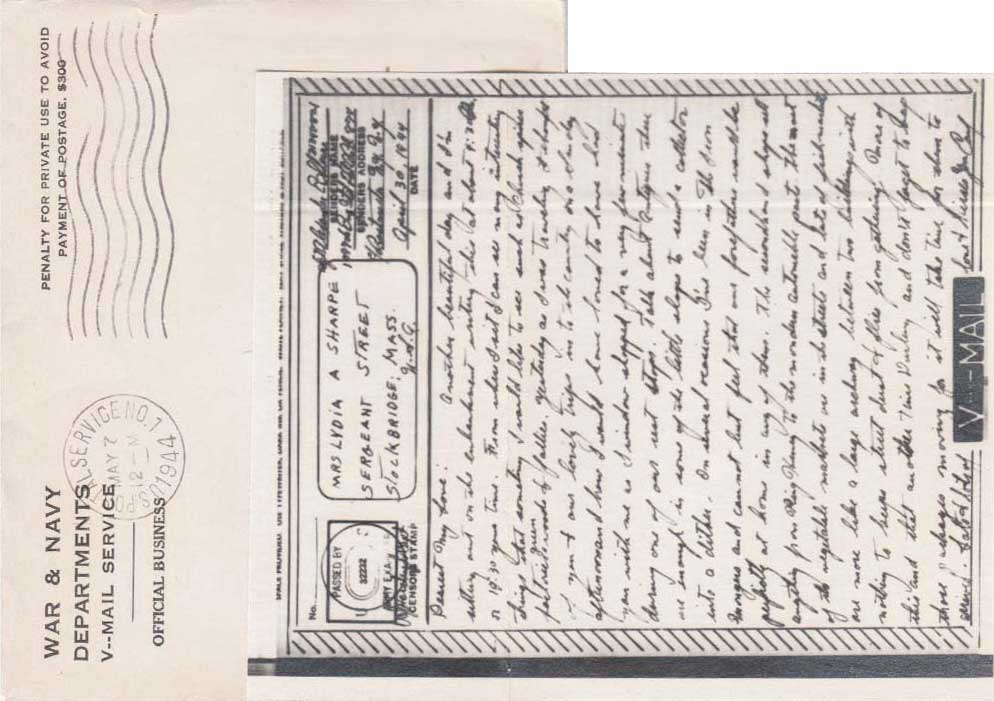 PENALTY FOR PRIVATE USE TO AVOID
PAYMENT OF POSTAGE, $300
WAR & NAVY
DEPARTMENTS
V--MAIL SERVICE
OFFICIAL BUSINESS
SERVICE NO. 1
MAY 7
12-M
1944
No.
PASSED BY
U S
32232
ARMY EXA
CENSORS STAMP
MRS LYDIA A SHARPE
SERGEANT STREET
STOCKBRIDGE, MASS.
U.S.A.
SENDERS NAME
SENDERS ADDRESS
April 30, 1944
DATE
Dearest My love:
Another beautiful day and I'm
sitting out on the embankment writing this at about
or 19:30 your time. From where I sit I can see many interesting
things that sometime I would like to see such as church spires
factories, woods & fallies. Yesterday as I was traveling I thought
of your & our lovely trips in to the country on a Saturday
afternoon and how I would have loved to have had
you with me as I window shopped for a very few moments
during one of our rest stops. Talk about antiques there
are enough in some of the little shops to send a collector
into a dither. On several occasions I've been in the
and cannot but feel that our forefathers would be
perfectly at home in any of them. The secondhand shops sell
anything from to the modern automobile parts. The most
of the vegetable markets are in the streets and lots of
are more like a large archway between two buildings with
nothing to keep street dust & flies from gathering. More of
this and that another time Darling and don't forget to keep
those packages moving for it will take time for them to
arrive. Lots & lots of love & kisses
V--MAIL